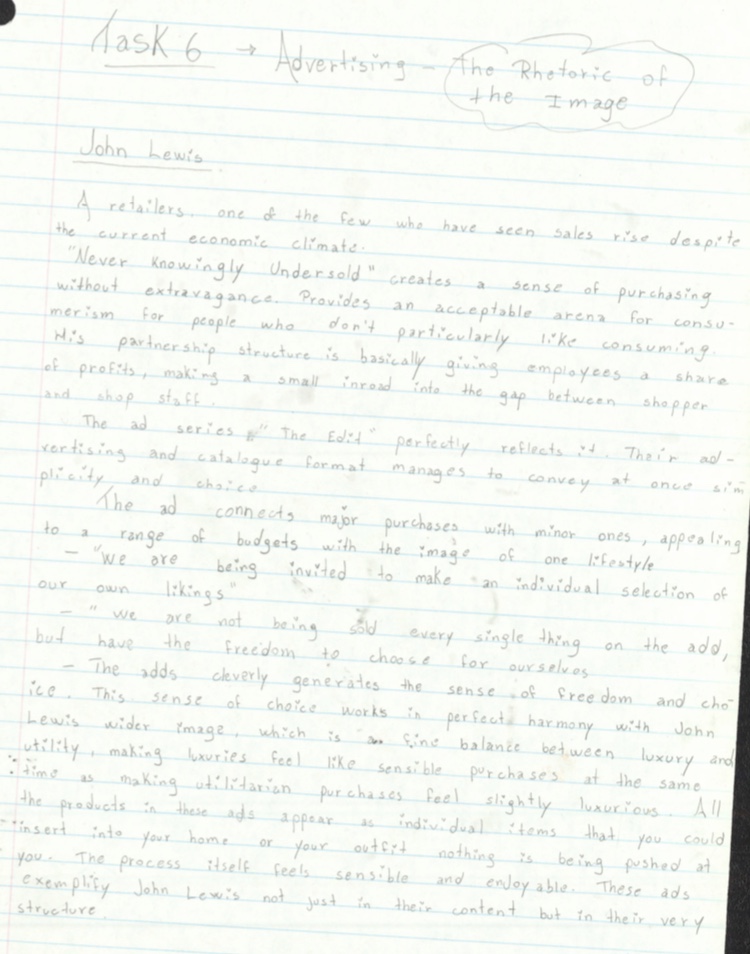 Task 6 → Advertising - The Rhetoric of
the Image
John Lewis
A retailers. one of the few who have seen sales rise despite
the current economic climate.
"Never Knowingly Undersold" creates a sense of purchasing
without extravagance. Provides an acceptable arena for consu-
merism for people who don't particularly like consuming.
His partnership structure is basically giving employees a share
of profits, making a small inroad into the gap between shopper
and shop staff.
The ad series "The Edit" perfectly reflects it. Their ad-
vertising and catalogue format manages to convey at once sim
plicity and choice
The ad connects major purchases with minor ones, appealing
to a range of budgets with the image of one lifestyle
- "We are being invited to make an individual selection of
our own likings"
- " we are not being sold every single thing on the add,
but have the freedom to choose for ourselves
- The adds cleverly generates the sense of freedom and cho-
ice. This sense of choice works in perfect harmony with John
Lewis wider image, which is a fine balance between luxury and
utility, making luxuries feel like sensible purchases at the same
time as making utilitarian purchases feel slightly luxurious. All
the products in these ads appear as individual items that you could
insert into your home or your outfit nothing is being pushed at
you. The process itself feels sensible and enjoyable. These ads
exemplify John Lewis not just in their content but in their very
structure.